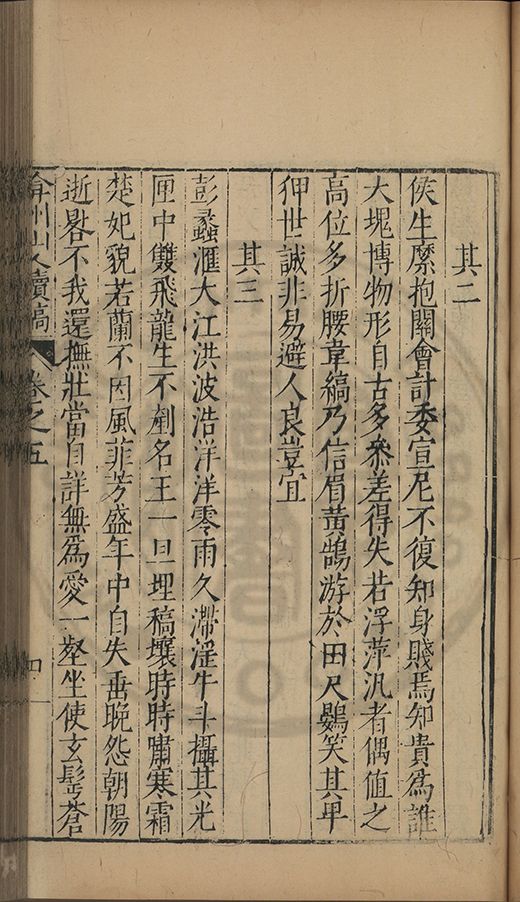 其二
侯生縻抱關會計委宣尼不復知身賤焉知貴為誰
大塊博物形自古多叅差得失若浮萍汎者偶值之
高位多折腰韋縞乃信眉黃鵠游於田尺鷃笑其卑
狎世誠非易避人良豈宜
其三
彭蠡滙大江洪波浩洋洋零雨久滯淫牛斗攝其光
匣中雙飛龍生不劀名王一旦埋稿壤時時嘯寒霜
楚妃貌若蘭不因風菲芳盛年中自失垂晚怨朝陽
逝晷不我還撫壯當自詳無為愛一壑坐使玄髩蒼
弇州山人續稿
卷之五
四